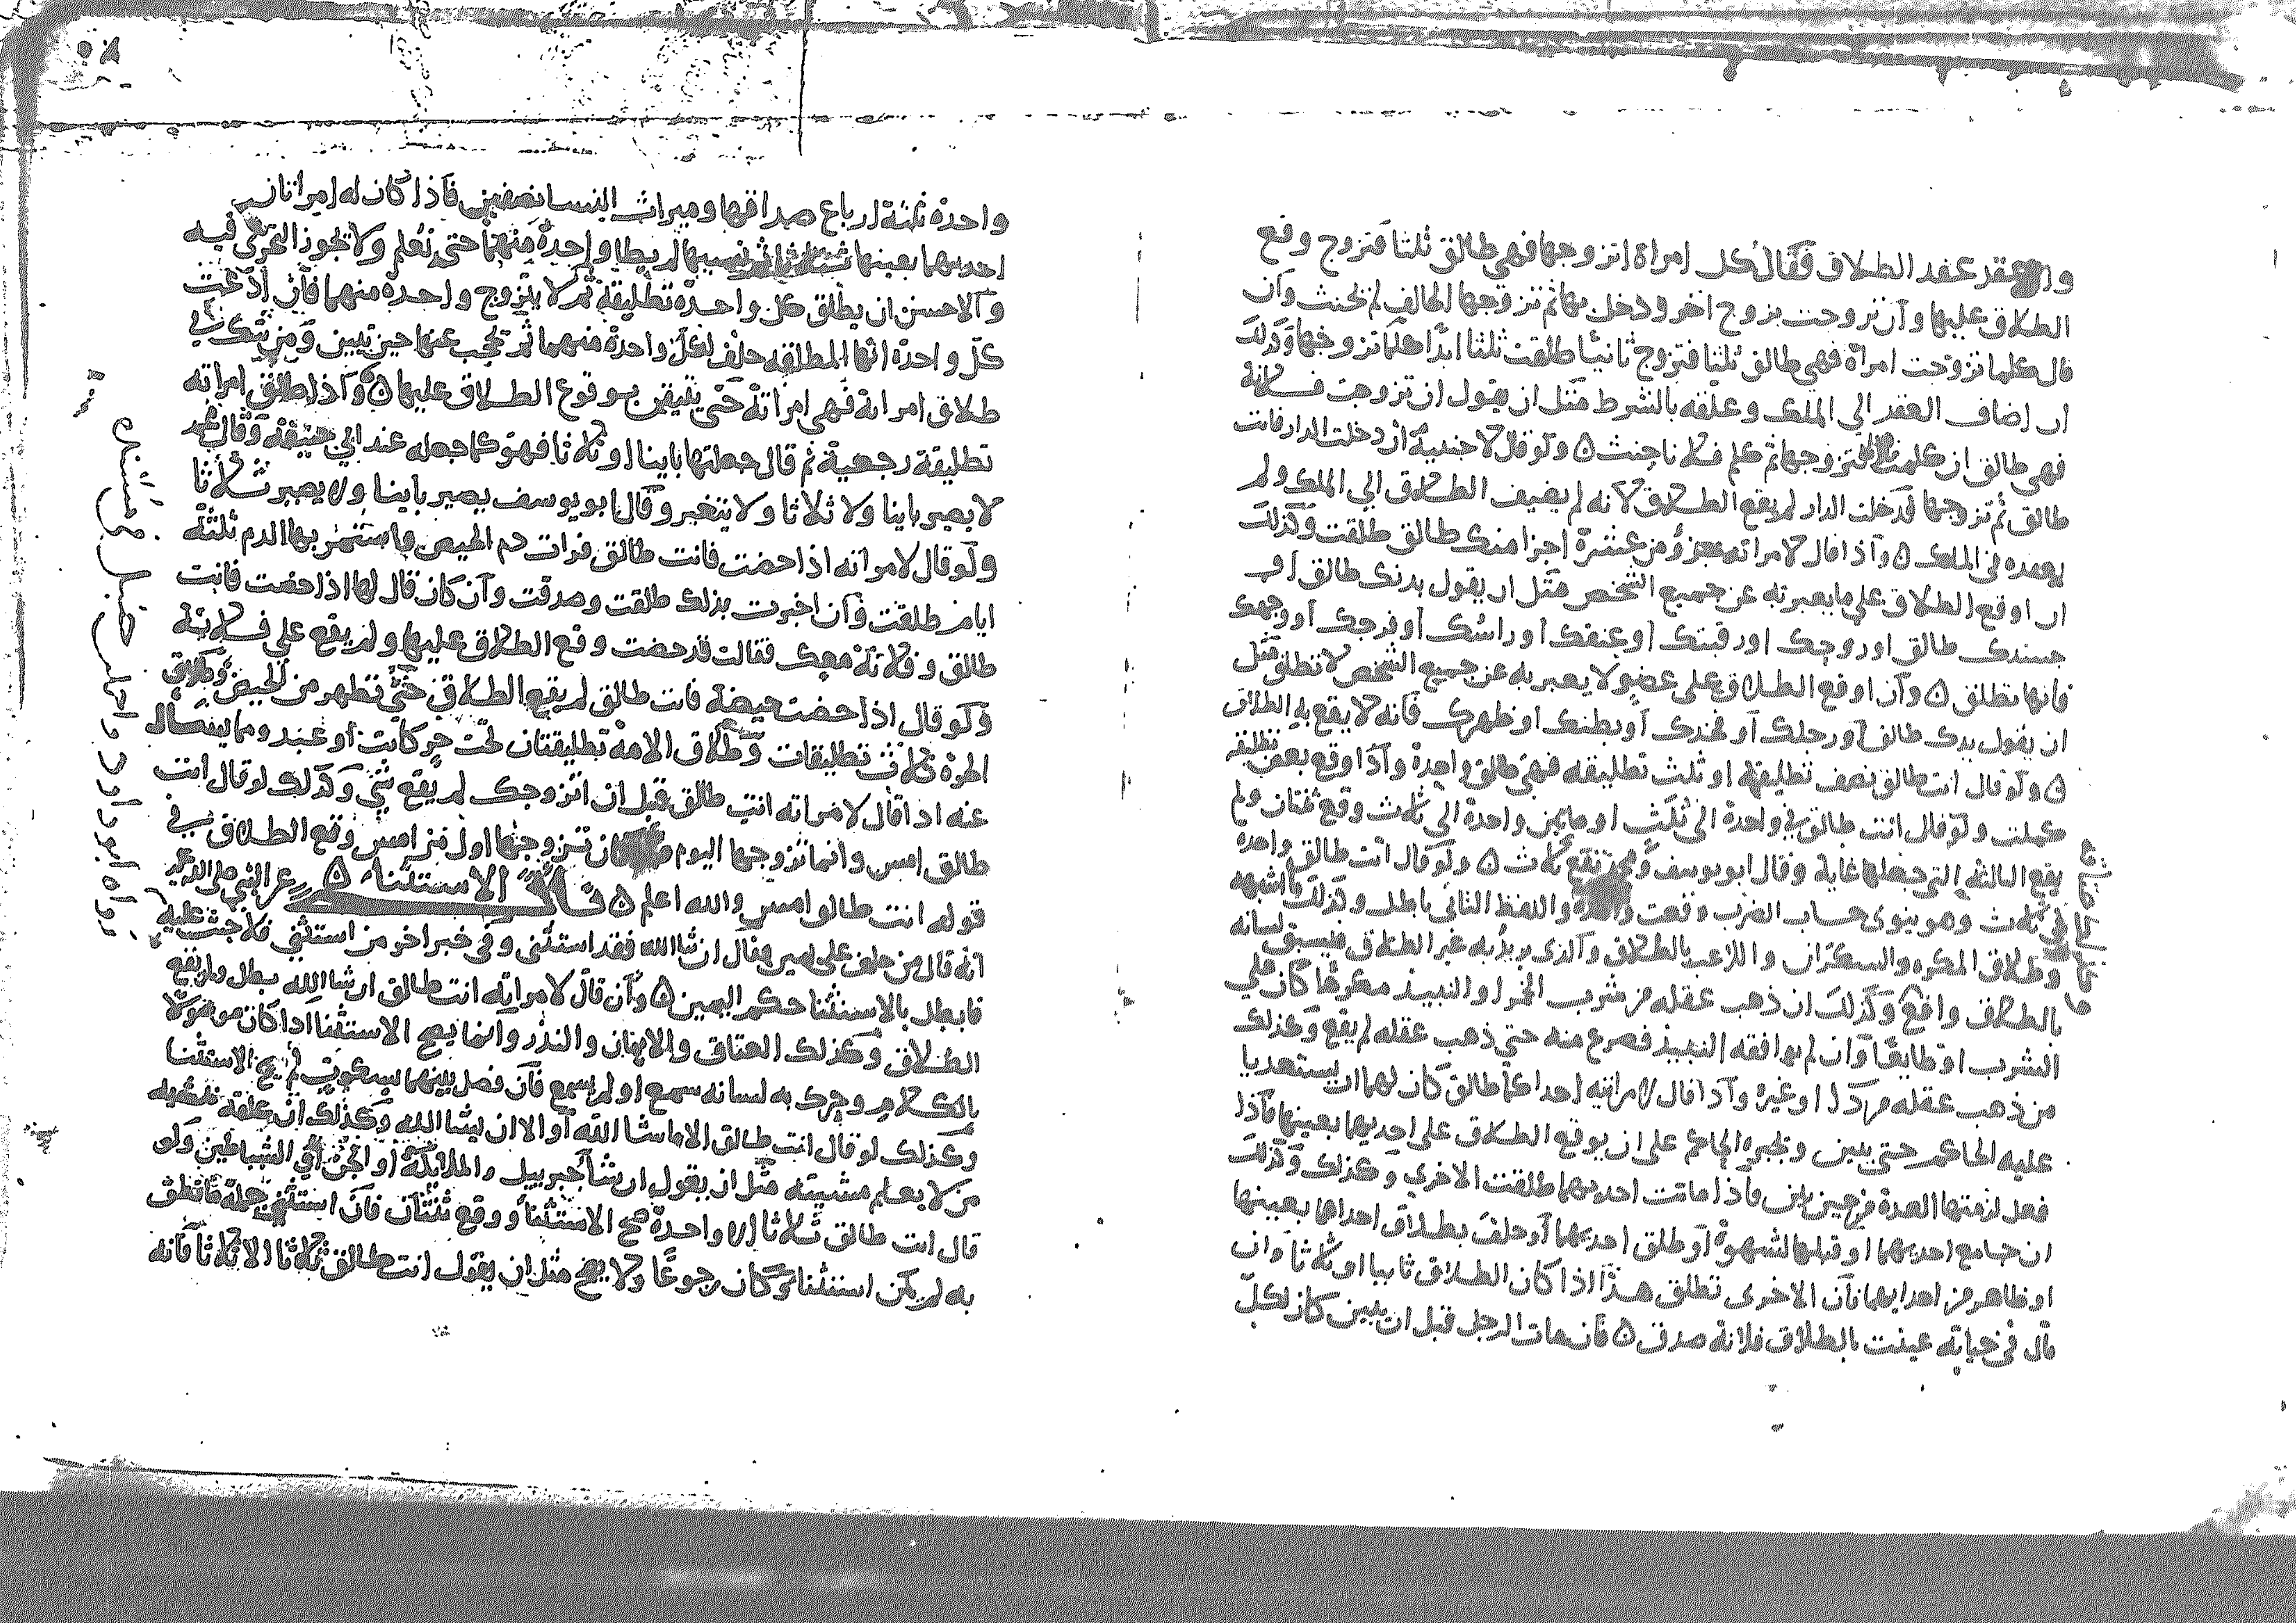 وان عقد عقد الطلاق فقال كل امراة اتزوجها فهي طالق ثلثا فتزوج وقع
الطلاق عليها وان تزوجت بزوج اخر ودخل بها ثم تزوجها الحالف لم يحنث وان
قال كلما تزوجت امراة فهي طالق ثلثا فتزوج ثانيا طلقت ثلثا ابدا كلما تزوجها وكذلك
ان اضاف العقد الي الملك وعلقه بالشرط مثل ان يقول ان تزوجت فلانة
فهي طالق ان كلمت فتزوجها ثم كلم فلانا حنث ه ولو قال لاجنبية ان دخلت الدار فانت
طالق ثم تزوجها فدخلت الدار لم يقع الطلاق لانه لم يضيف الطلاق الي الملك ولم
يعقده في الملك ه واذا قال لامراته جزؤ من عشرة اجزا منك طالق طلقت وكذلك
ان اوقع الطلاق علي ما يعبر به عن جميع الشخص مثل ان يقول بدنك طالق او
جسدك طالق او روحك او رقبتك او عنقك او راسك او فرجك او وجهك
فانها تطلق ه وان اوقع الطلاق على عضو لا يعبر به عن جميع الشخص لا تطلق مثل
ان يقول يدك طالق او رجلك او فخدك او بطنك او ظهرك فانه لا يقع به الطلاق
ه ولو قال انت طالق نصف تطليقة او ثلث تطليقه فهي طالق واحدة واذا اوقع بعض تطليقة
كملت ولو قال انت طالق في واحدة الى ثلث او ما بين واحدة الي ثلاث وقع ثنتان ولم
يقع الثالثه التي جعلها غاية وقال ابو يوسف ومحمد تقع ثلاث ه ولو قال انت طالق واحده
في ثلاث وهو ينوى حساب الضرب وقعت واحدة واللفظ الثاني باطل وكذلك ما اشبهه
وطلاق المكره والسكران واللاعب بالطلاق والذى يريد به غير الطلاق فيسبق لسانه
بالطلاق واقع وكذلك ان ذهب عقله من شرب الخمر او النبيذ مكرها كان علي
الشرب او طايعا وان لم يوافقه النبيذ فصرع منه حتي ذهب عقله لم يقع وكذلك
من ذهب عقله من دا او غيره واذا قال لامراتيه احداكما طالق كان لهما ان يستعديا
عليه الحاكم حتي يبين ويجبره الحاكم على ان يوقع الطلاق على احديهما بعينها فاذا
فعل لزمتها العدة من حين بين فاذا ماتت احديهما طلقت الاخري وكذلك
ان جامع احديهما او قبلها لشهوة او طلق احديهما او حلف بطلاق احداهما بعينها
او ظاهر من احدايهما فان الاخرى تطلق هذا اذا كان الطلاق ثابيا او ثلاثا وان
قال في حياته عينت بالطلاق فلانة صدق ه فان مات الرجل قبل ان يبين كان لكل
واحدة ثلثة ارباع صداقها وميراث النسا نصفين فاذا كان له امراتان
احديهما بعينها نسيها لم يطا واحدة منهما حتى تعلم ولا يجوز التحري فيه
والاحسن ان يطلق كل واحدة تطليقة ثم لا يتزوج واحدة منهما فان ادعت
كل واحدة انها المطلقه حلف لكل واحدة منهما ثم تحجب عنها حين تبين ومن شك في
طلاق امراته فهي امراته حتى يتيقن بوقوع الطلاق عليها ه واذا طلق امراته
تطليقة رجعية ثم قال جعلتها باينا او ثلاثا فهو كما جعله عند ابي حنيفة وقال محمد
لا يصير باينا ولا ثلاثا ولا يتغير وقال ابو يوسف يصير باينا ولا يصير ثلاثا
ولو قال لامراته اذا حضت فانت طالق فرات دم الحيض واستمر بها الدم ثلثة
ايام طلقت فان اخبرت بذلك طلقت وصدقت وان كان قال لها اذا حضت فانت
طالق وفلانة معك فقالت قد حضت وقع الطلاق عليها ولم يقع علي فلانة
ولو قال اذا حضت حيضة فانت طالق لم يقع الطلاق حتي تطهر من الحيض وطلاق
الحرة ثلاث تطليقات وطلاق الامة تطليقتان تحت حر كانت او عبد ومما يسال
عنه اذا قال لامراته انت طالق قبل ان اتزوجك لم يقع شي وكذلك لو قال انت
طالق امس وانما تزوجها اليوم فان تزوجها اول من امس وقع الطلاق في
قوله انت طالق امس والله اعلم ه باب الاستثنا ه عن النبي صلى الله عليه
انه قال من حلف على يمين وقال ان شا الله فقد استثنى وفي خبر اخر من استثني فلا حنث عليه
فابطل بالاستثنا حكم اليمين ه وان قال لامراته انت طالق ان شا الله بطل ولم يقع
الطلاق وكذلك العتاق والايمان والنذر وانما يصح الاستثنا اذا كان موصولا
بالكلام وحرك به لسانه سمع او لم يسمع فان فصل بينهما بسكوت لم يصح الاستثنا
وكذلك لو قال انت طالق الا ما شا الله او الا ان يشا الله وكذلك ان علقه بمشيه
من لا يعلم مشيته مثل ان يقول ان شا جبرييل والملايكة او الجن او الشياطين ولو
قال انت طالق ثلاثا الا واحدة صح الاستثنا ووقع ثنتان فان استثني جملة ما نطق
به لم يكن استثنا وكان رجوعا ولا يصح مثل ان يقول انت طالق ثلاثا الا ثلاثا فانه
رواه ابو داود واحمد بن حنبل في مسنده